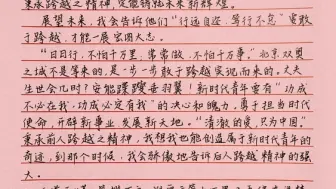 秉承跨越之精神，定能铸就未来新辉煌。
展望未来，我会告诉他们“行远自迩，笃行不怠”要敢
于跨越，才能一展宏图大志。
“日日行，不怕千万里；常常做，不怕千万事。”北京双奥
之城不是等来的，是一步一步敢于跨越实现而来的。大丈夫
生世会几时？安能蹀躞垂羽翼！新时代青年要有“功成
不必在我，功成必定有我”的决心和魄力。勇于担当时代
使命，开辟新事业，发展新天地。“清澈的爱，只为中国。”
秉承前人跨越之精神，我想我也能创造属于新时代青年的
奇迹，到那个时候，我会骄傲地告诉后人跨越精神的强
大。